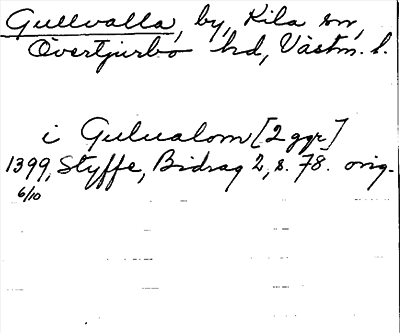 Gullvalla, by, Kila sn,
Övertjurbo hd, Västm. l.
i Gulualom [2 ggr]
1399, Styffe, Bidrag 2, s. 78. orig.
6/10